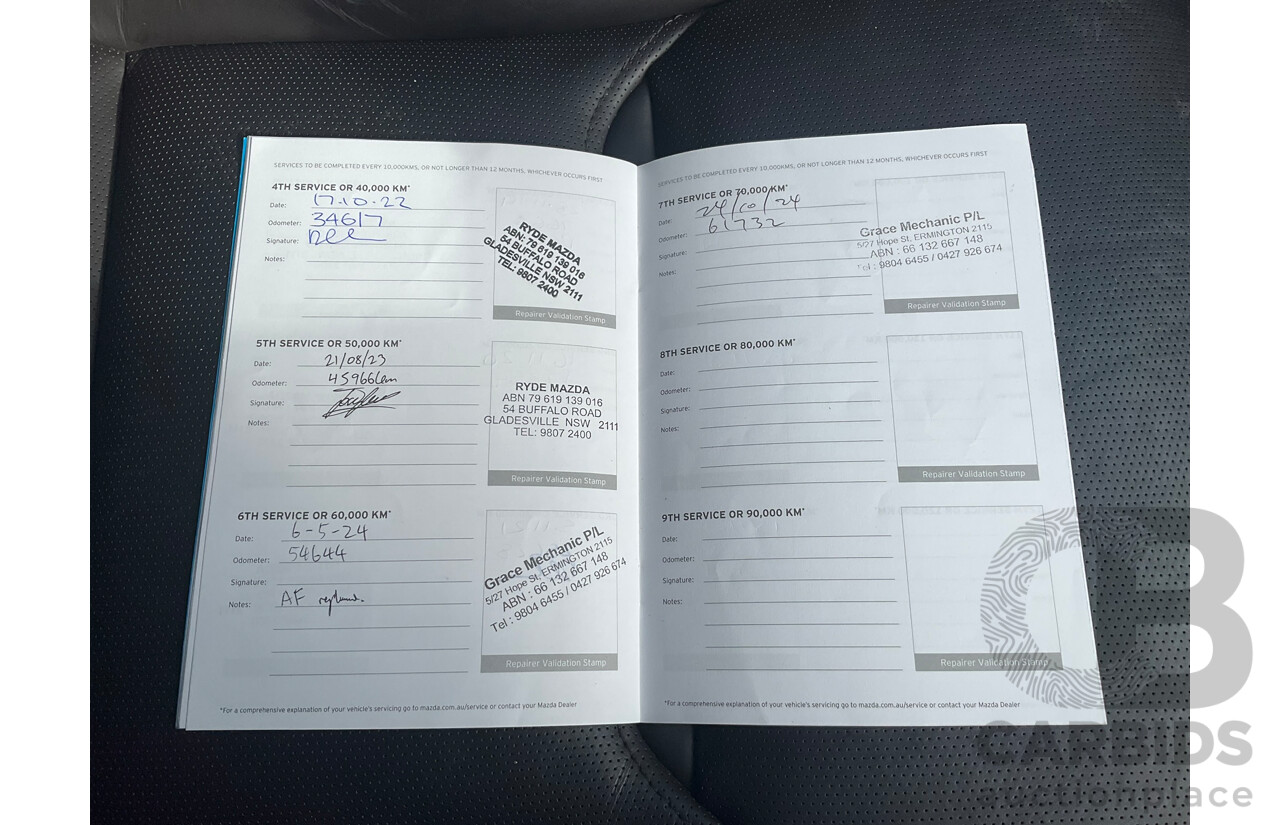 SERVICES TO BE COMPLETED EVERY 10,000KMS, OR NOT LONGER THAN 12 MONTHS, WHICHEVER OCCURS FIRST
4TH SERVICE OR 40,000 KM*
Date: 17.10.22
Odometer: 34617
Signature:
Notes:
RYDE MAZDA
ABN: 79 619 139 016
54 BUFFALO ROAD
GLADESVILLE NSW 2111
TEL: 9807 2400
Repairer Validation Stamp
5TH SERVICE OR 50,000 KM*
Date: 21/08/23
Odometer: 45966km
Signature:
Notes:
RYDE MAZDA
ABN 79 619 139 016
54 BUFFALO ROAD
GLADESVILLE NSW 2111
TEL: 9807 2400
Repairer Validation Stamp
6TH SERVICE OR 60,000 KM*
Date: 6-5-24
Odometer: 54644
Signature:
Notes: AF
Grace Mechanic P/L
5/27 Hope St, ERMINGTON 2115
ABN : 66 132 667 148
Tel : 9804 6455 / 0427 926 674
Repairer Validation Stamp
*For a comprehensive explanation of your vehicle's servicing go to mazda.com.au/service or contact your Mazda Dealer
SERVICES TO BE COMPLETED EVERY 10,000KMS, OR NOT LONGER THAN 12 MONTHS, WHICHEVER OCCURS FIRST
7TH SERVICE OR 70,000 KM*
Date: 24/10/24
Odometer: 61732
Signature:
Notes:
Grace Mechanic P/L
5/27 Hope St, ERMINGTON 2115
ABN : 66 132 667 148
Tel : 9804 6455 / 0427 926 674
Repairer Validation Stamp
8TH SERVICE OR 80,000 KM*
Date:
Odometer:
Signature:
Notes:
Repairer Validation Stamp
9TH SERVICE OR 90,000 KM*
Date:
Odometer:
Signature:
Notes:
Repairer Validation Stamp
*For a comprehensive explanation of your vehicle's servicing go to mazda.com.au/service or contact your Mazda Dealer
CB
CARBIDS
auctionplace